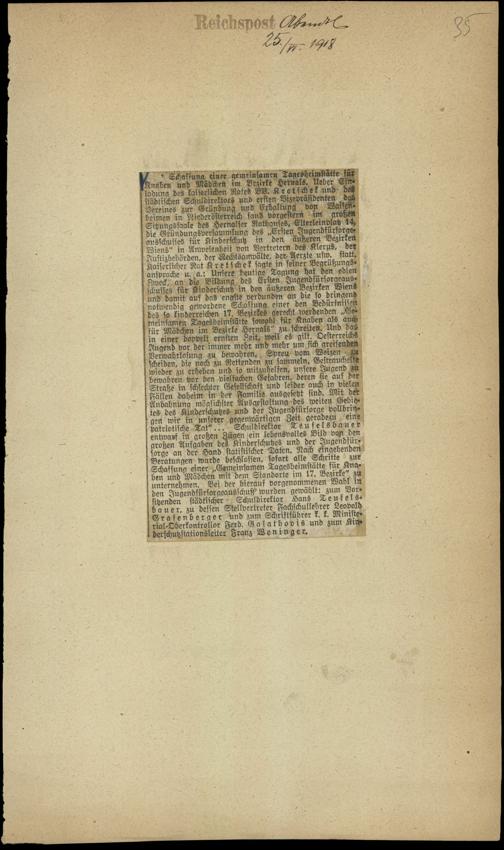 Reichspost Abendbl
35
25./VI. 1918
* Schaffung einer gemeinsamen Tagesheimstätte für
Knaben und Mädchen im Bezirke Hernals. Ueber Ein-
ladung des kaiserlichen Rates VB. Kretschek und des
städtischen Schuldirektors und ersten Vizepräsidenten des
Vereines zur Gründung und Erhaltung von Waisen-
heimen in Niederösterreich fand vorgestern im großen
Sitzungssaale des Hernalser Rathauses, Elterleinplatz 14,
die Gründungsversammlung des „Ersten Jugendfürsorge-
ausschusses für Kinderschutz in den äußeren Bezirken
Wiens" in Anwesenheit von Vertretern des Klerus, der
Justizbehörden, der Rechtsanwälte, der Aerzte usw. statt.
Kaiserlicher Rat Kretschek sagte in seiner Begrüßungs-
ansprache u. a.: Unsere heutige Tagung hat den edlen
Zweck, an die Bildung des Ersten Jugendfürsorgeaus-
schusses für Kinderschutz in den äußeren Bezirken Wiens
und damit auf das engste verbunden an die so dringend
notwendig gewordene Schaffung einer den Bedürfnissen
des so kinderreichen 17. Bezirkes gerecht werdenden „Ge-
meinsamen Tagesheimstätte sowohl für Knaben als auch
für Mädchen im Bezirke Hernals" zu schreiten. Und das
in einer doppelt ernsten Zeit, weil es gilt, Oesterreichs
Jugend vor der immer mehr und mehr um sich greifenden
Verwahrlosung zu bewahren, Spreu vom Weizen zu
scheiden, die noch zu Rettenden zu sammeln, Gestrauchelte
wieder zu erheben und so mitzuhelfen, unsere Jugend zu
bewahren vor den vielfachen Gefahren, deren sie auf der
Straße in schlechter Gesellschaft und leider auch in vielen
Fällen daheim in der Familie ausgesetzt sind. Mit der
Anbahnung möglichster Ausgestaltung des weiten Gebie-
tes des Kinderschutzes und der Jugendfürsorge vollbrin-
gen wir in unserer gegenwärtigen Zeit geradezu eine
patriotische Tat"... Schuldirektor Teufelsbauer
entwarf in großen Zügen ein lebensvolles Bild von den
großen Aufgaben des Kinderschutzes und der Jugendfür-
sorge an der Hand statistischer Daten. Nach eingehenden
Beratungen wurde beschlossen, sofort alle Schritte zur
Schaffung einer „Gemeinsamen Tagesheimstätte für Kna-
ben und Mädchen mit dem Standorte im 17. Bezirke" zu
unternehmen. Bei der hierauf vorgenommenen Wahl in
den Jugendfürsorgeausschuß wurden gewählt: zum Vor-
sitzenden städtischer Schuldirektor Hans Teufels-
bauer, zu dessen Stellvertreter Fachschullehrer Leopold
Grafenberger und zum Schriftführer k. k. Ministe-
rial-Oberkontrollor Ferd. und zum Kin-
derschutzstationsleiter Franz Weninger.